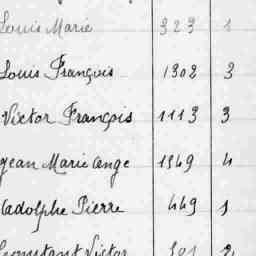 Louis Marie 323 1
Louis François 1302 3
Victor François 1113 3
Jean Marie Ange 1349 4
adolphe Pierre 449 1
Constant Victor 301 2